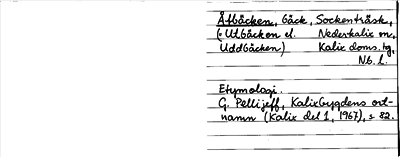 Åtbäcken, bäck, Sockenträsk,
(= Utbäcken el. Nederkalix sn,
Uddbäcken) Kalix doms. tg,
Nb. l.
Etymologi.
G. Pellijeff, Kalixbygdens ort-
namn (Kalix del 1, 1967), s 82.